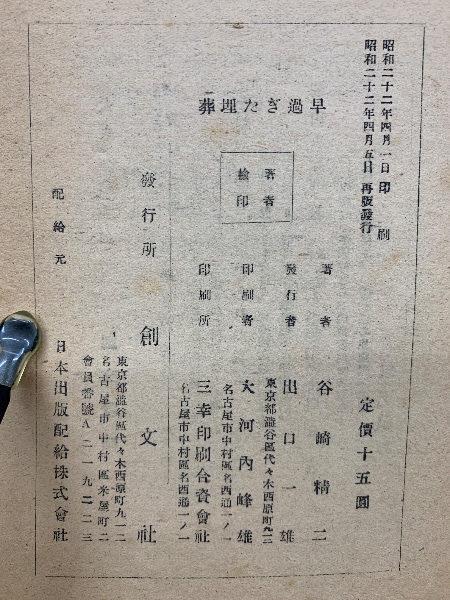 昭和二十二年四月一日 印刷
昭和二十二年四月五日 再版發行
定價十五圓
早過ぎた埋葬
著者
檢印
著者 谷崎精二
東京都澁谷區代々木西原町九一二
發行者 出口一雄
名古屋市中村區名西通一ノ一
印刷者 大河內峰雄
名古屋市中村區名西通一ノ一
印刷所 三幸印刷合資會社
發行所 創文社
東京都澁谷區代々木西原町九一二
名古屋市中村區米屋町二
會員番號A二一九二二三
配給元 日本出版配給株式會社